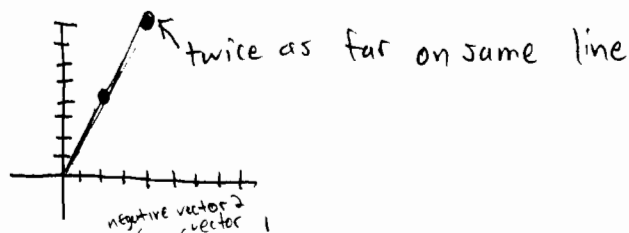 twice as far on same line
negative vector 2
vector 1